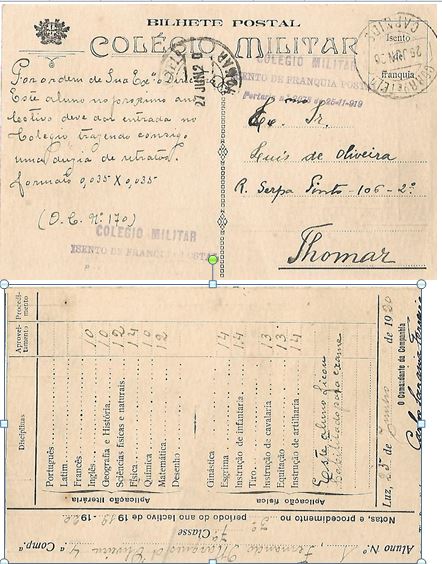 BILHETE POSTAL
COLÉGIO MILITAR
Por ordem de Sua Exª o Director
Este aluno no proximo ano
lectivo deve dar entrada no
Colegio trazendo consigo
uma duzia de retratos.
formato 0,035 X 0,035
(O.C. Nº 170)
COLEGIO MILITAR
ISENTO DE FRANQUIA POSTAL
27 JUN 20
THOMAR
COLEGIO MILITAR
ISENTO DE FRANQUIA POSTAL
Portaria n.º de 25-11-919
Isento
de
franquia
CARNIDE
Exº Sr.
Luis de Oliveira
R. Serpa Pinto - 106 - 2º
Thomar
Aluno Nº 1, Fernando Marques d'Oliveira 4ª Compª
7ª Classe
Notas, e procedimento no 3º período do ano lectivo de 1919-1920
Disciplinas
Aproveitamento
Procedimento
Aplicação literária
Português
Latim
Francês
Inglês 10
Geografia e História 10
Sciências físicas e naturais 12
Física 14
Química 10
Matemática 12
Desenho
Aplicação física
Ginástica
Esgrima 14
Instrução de infantaria 14
Tiro
Instrução de cavalaria 13
Equitação 13
Instrução de artilharia 14
Este aluno ficou
habilitado para exame
Luz, 25 de Junho de 1920
O Comandante da Companhia